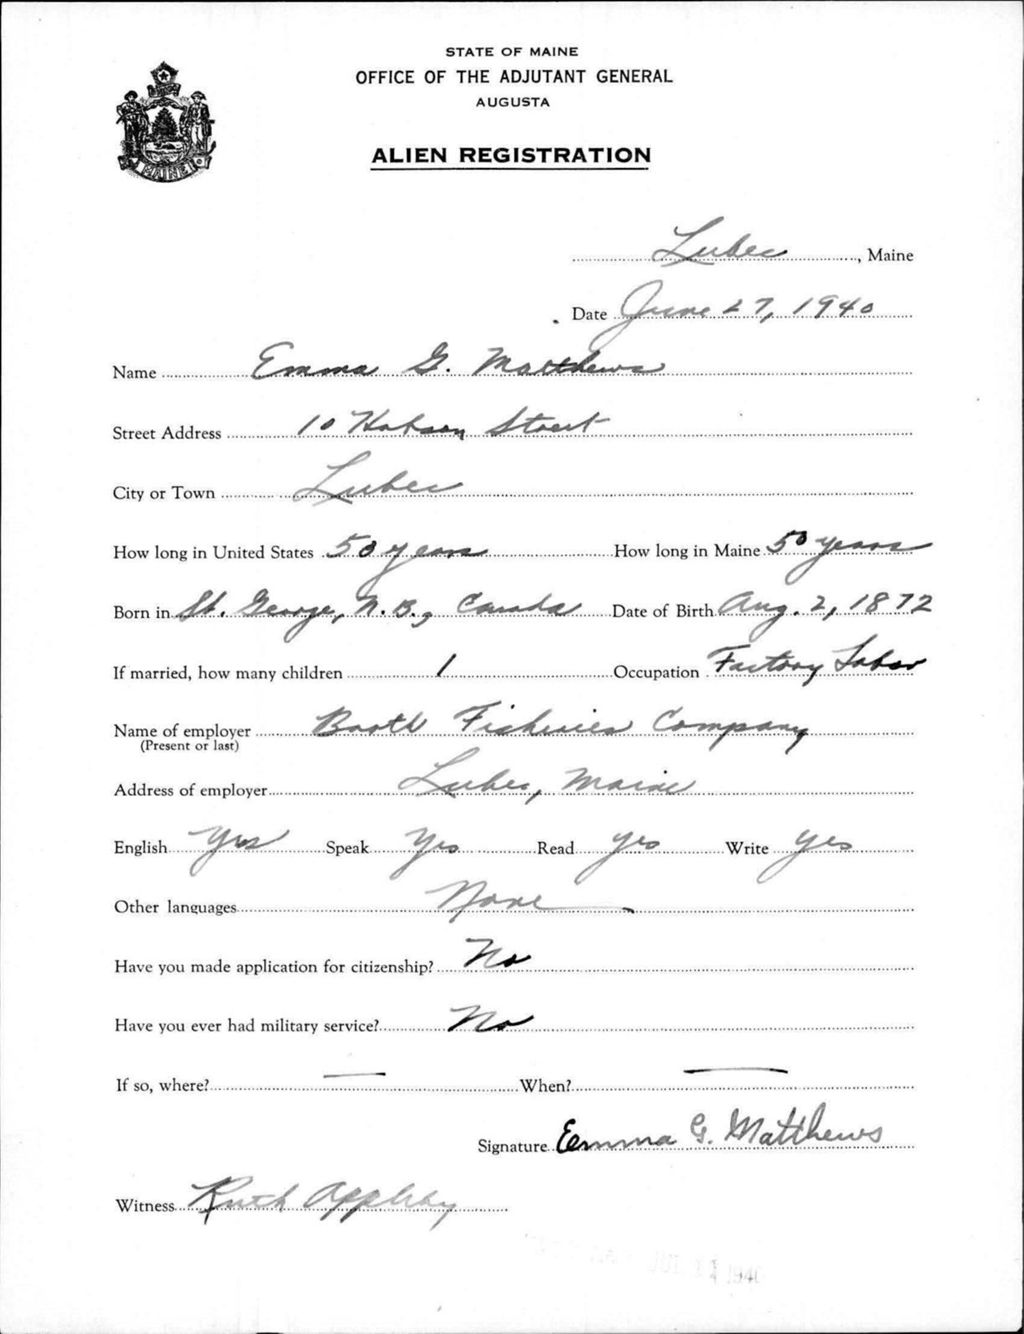 STATE OF MAINE
OFFICE OF THE ADJUTANT GENERAL
AUGUSTA
ALIEN REGISTRATION
MAINE
Lubec, Maine
Date June 27, 1940
Name Emma G. Matthews
Street Address 10 Hobson Street
City or Town Lubec
How long in United States 50 years How long in Maine 50 years
Born in St. George, N.B., Canada Date of Birth Aug. 2, 1872
If married, how many children 1 Occupation Factory Labor
Name of employer Booth Fisheries Company
(Present or last)
Address of employer Lubec, Maine
English Yes Speak Yes Read yes Write yes
Other languages None
Have you made application for citizenship? No
Have you ever had military service? No
If so, where? — When? —
Signature Emma G. Matthews
Witness Ruth Appleby
1940